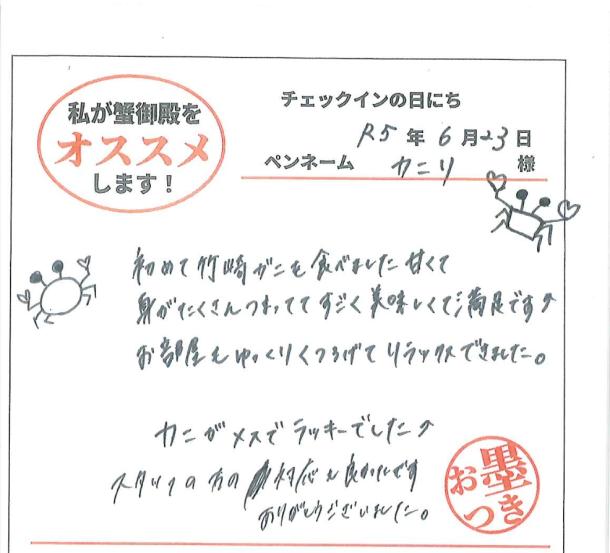 私が蟹御殿を
オススメ
します!
チェックインの日にち
R5年6月23日
ペンネーム カニリ 様
初めて竹崎ガニを食べました 甘くて
身がたくさんつまってて すごく美味しくて満足です♪
お部屋もゆっくりくつろげてリラックスできました。
カニがメスでラッキーでした♪
スタッフの方の対応も良かったです
ありがとうございました。
お墨つき